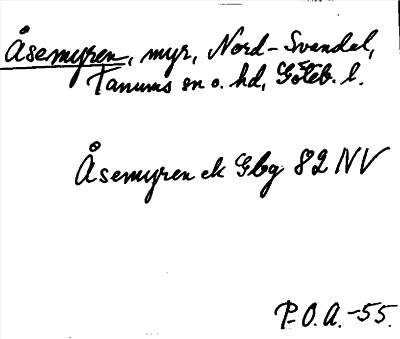 Åsemyren, myr, Nord-Svendal,
Tanums sn o. hd, Göteb. l.
Åsemyren ek Gbg 82 NV
P.O.A. -55.